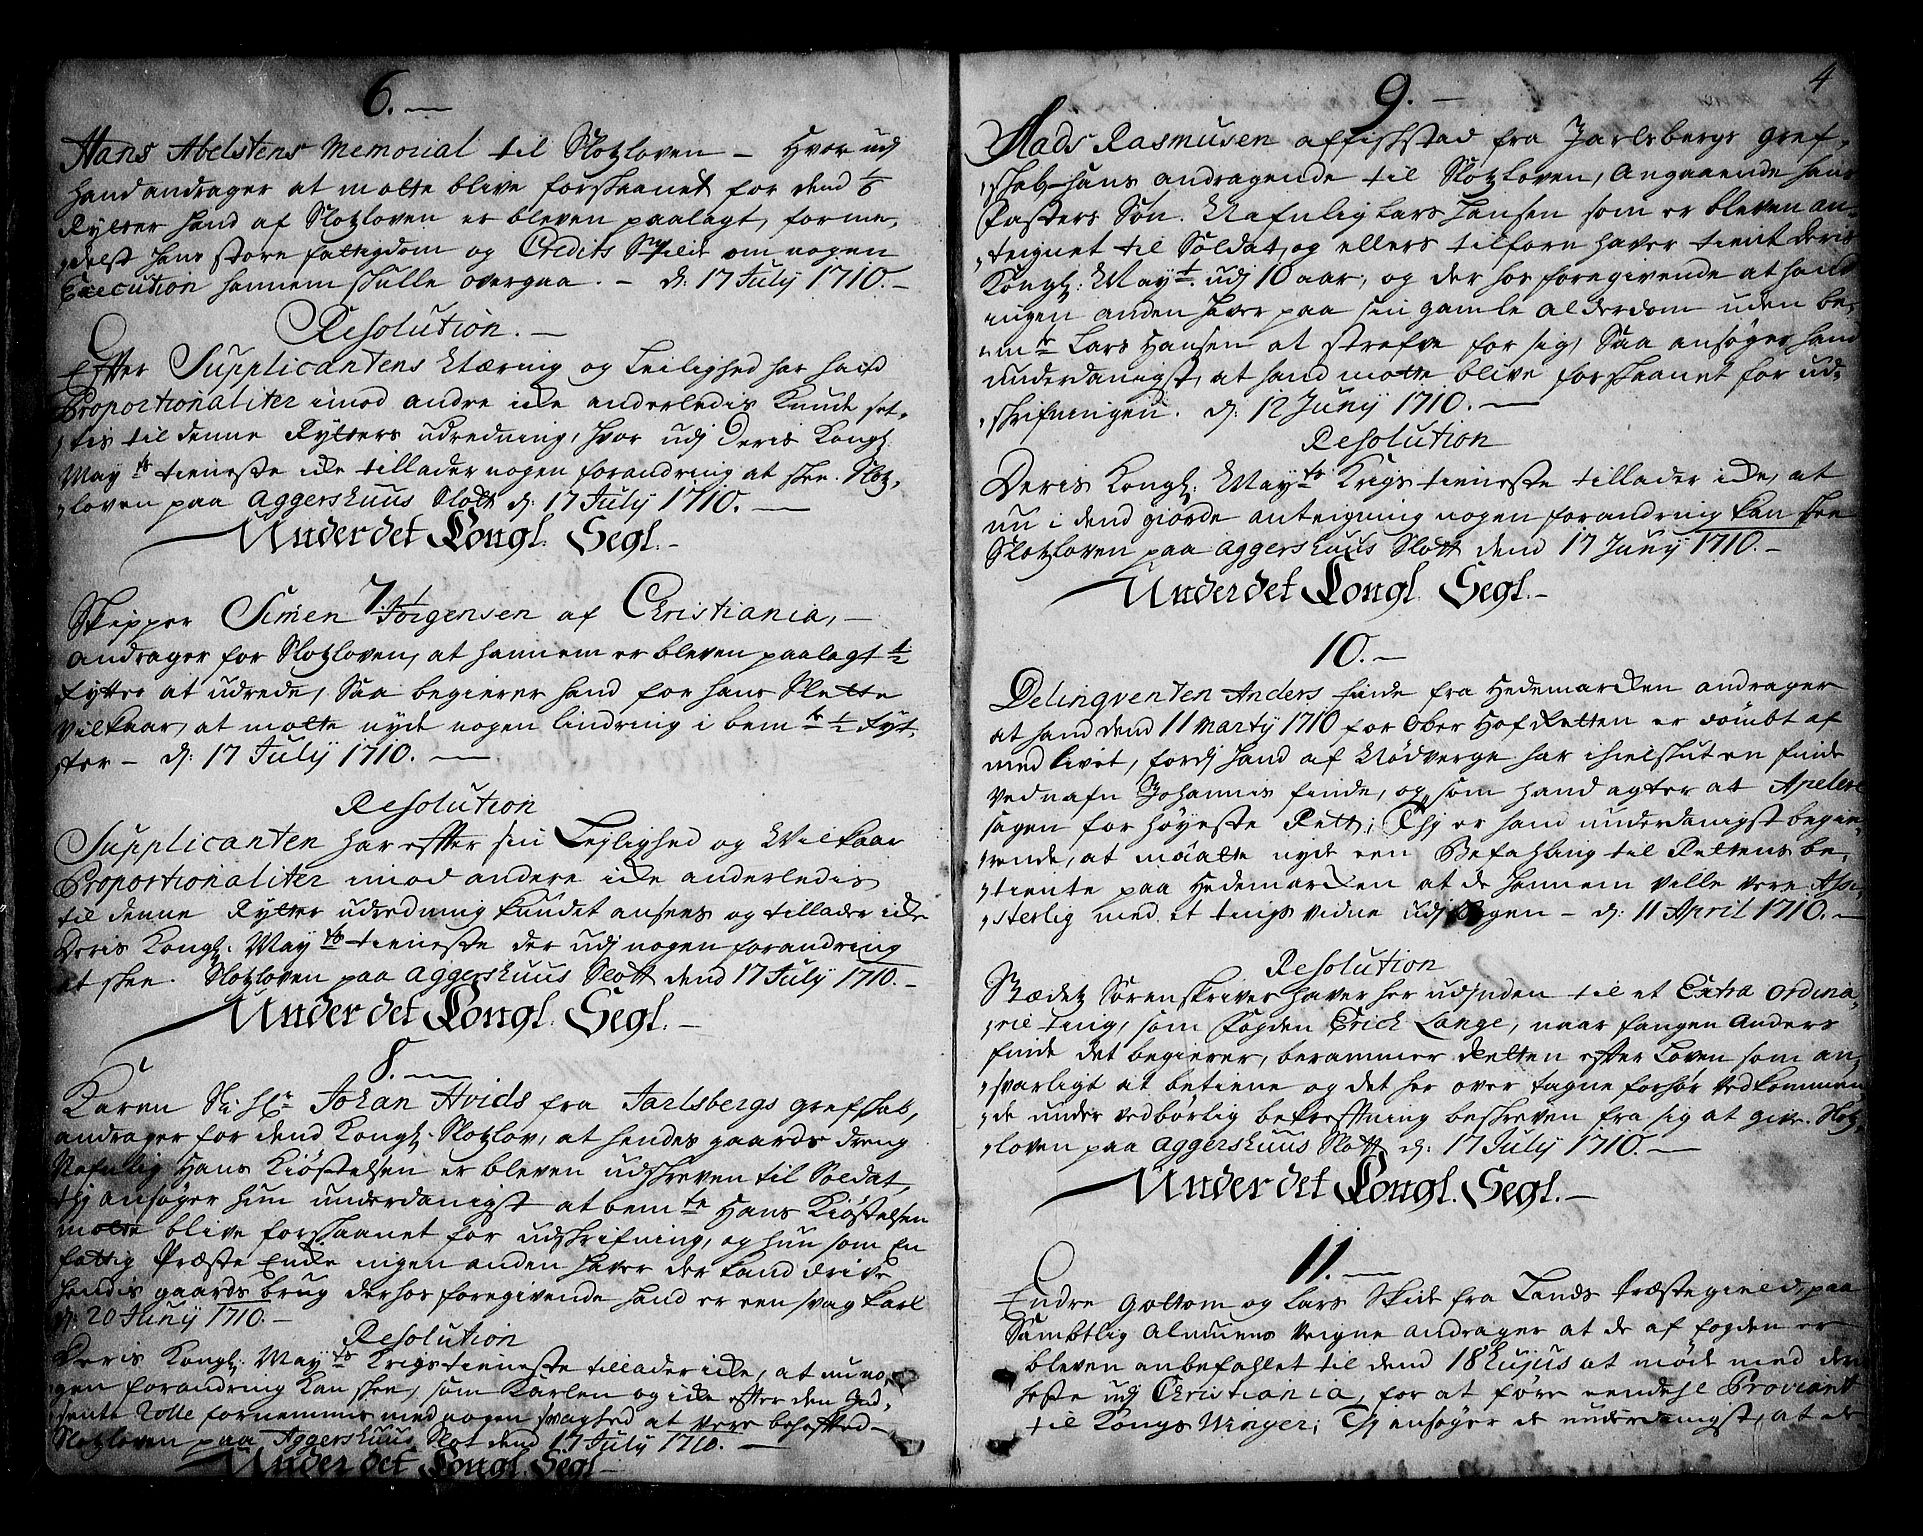 6.
Hans Abelstens Memorial til Slotzloven – Hvor udj
hand andrager at motte blive forskaanet for dend 1/6
Rytter hand af Slotzloven er bleven paalagt, forme,
,delst hans store fattigdom og Credits Spilde om nogen
Execution hannem skulle overgaa. – d: 17 July 1710. –
Resolution. –
Efter Supplicantens Næring og Leilighed har hand
Proportionaliter imod andre icke anderledis kunde set,
,tis til denne Rytters udredning, hvor udj Deris Kongl:
May.ts tieneste icke tillader nogen forandring at skee. Slotz,
,loven paa Aggershuus Slott d: 17 July 1710. –
Under det Kongl. Segl. –
7.
Skipper Simen Jörgensen af Christiania, –
andrager for Slotzloven, at hannem er bleven paalagt 1/2
Rytter at udrede, Saa begierer hand for hans Slette
Vilkaar, at motte nyde nogen lindring i bem.te 1/2 Ryt,
,ter – d: 17 July 1710. –
Resolution
Supplicanten har efter sin Lejlighed og Vilkaar
Proportionaliter imod andere icke anderledis
til denne Rytter udredning kundet ansees og tillader icke
Deris Kongl: May.ts tieneste der udj nogen forandring
at skee. Slotzloven paa Aggershuus Slott dend 17 July 1710. –
Under det Kongl. Segl. –
8. –
Karen Sl: Hr Johan Hvids fra Jarlsbergs grefskab,
andrager for dend Kongl: Slotzlov, at hendes gaards dreng
Nafnlig Hans Kiöstelsen er bleven udskreven til Soldat,
thj ansöger hun underdanigst at bem.te Hans Kiöstelsen
motte blive forskaanet for udskrifning, og hun som En
fattig Præste Encke ingen anden haver der kand drive
hendis gaards brug derhos foregivende hand er een svag karl
d: 20 Juny 1710. –
Resolution
Deris Kongl: May.ts Krigstieneste tillader icke, at nu no,
,gen forandring kan skee, som Karlen og icke efter den Ind,
,sente Rolle fornemmis med nogen svaghed at vere behefted –
Slotzloven paa Aggershuus Slot dend 17 July 1710. –
Under det Kongl. Segl –
4
9. –
Mads Rasmusen af fiskstad fra Jarlsbergs gref,
,skab hans andragende til Slotzloven, Angaaende hans
Fosters Sön. Nafnlig Lars Hansen som er bleven an,
,teignet til Soldat, og ellers tilforn haver tient deris
Kongl: May.t udj 10 aar, og der hos foregivende at hand
ingen anden haver paa sin gamle alderdom uden be,
,m.te Lars Hansen at strefve for sig, Saa ansöger hand
underdanigst, at hand motte blive forskaanet for ud,
,skrifningen. d: 12 Juny 1710. –
Resolution
Deris Kongl: May.ts Krigs tieneste tillader icke, at
nu i dend giorde anteigning nogen forandring kan skee
Slotzloven paa Aggershuus Slott dend 17 Juny 1710. –
Under det Kongl. Segl. –
10. –
Delinqventen Anders finde fra Hedemarcken andrager
at hand dend 11 Marty 1710 for Ober Hof Retten er dömbt af
med Livet, fordj hand af Nödverge har ihielskut en finde
Ved nafn Johannis finde, og som hand agter at Apelere
sagen for Höyeste Rett; Thj er hand underdanigst begie,
,rende, at maatte nyde een Befahling til Rettens be,
,tiente paa Hedemarcken at de hannem Ville vere Assi,
,sterlig med et tings vidne udj sagen – d: 11 April 1710. –
Resolution
Stædetz Sörenskriver haver her udjnden til et Extra ordina,
,rie ting, som Fogden Erich Lange, naar fangen Anders
finde det begierer, berammer Retten efter Loven som an,
,svarligt at betiene og det her over tagne forhör vedkommen,
,de under vedbörlig bekreftning beskreven fra sig at give. Slotz,
,loven paa Aggershuus Slott d: 17 July 1710. –
Under det Kongl. Segl. –
11. –
Endre Goltom og Lars Skide fra Lands Præstegield, paa
Sambtlig Almuens Veigne andrager at de af fogden er
bleven anbefahlet til dend 18 Hujus at möde med der
heste udj Christiania, for at före eendehl Proviant
til Kongs Winger; Thj ansöger de underdanigst, at de